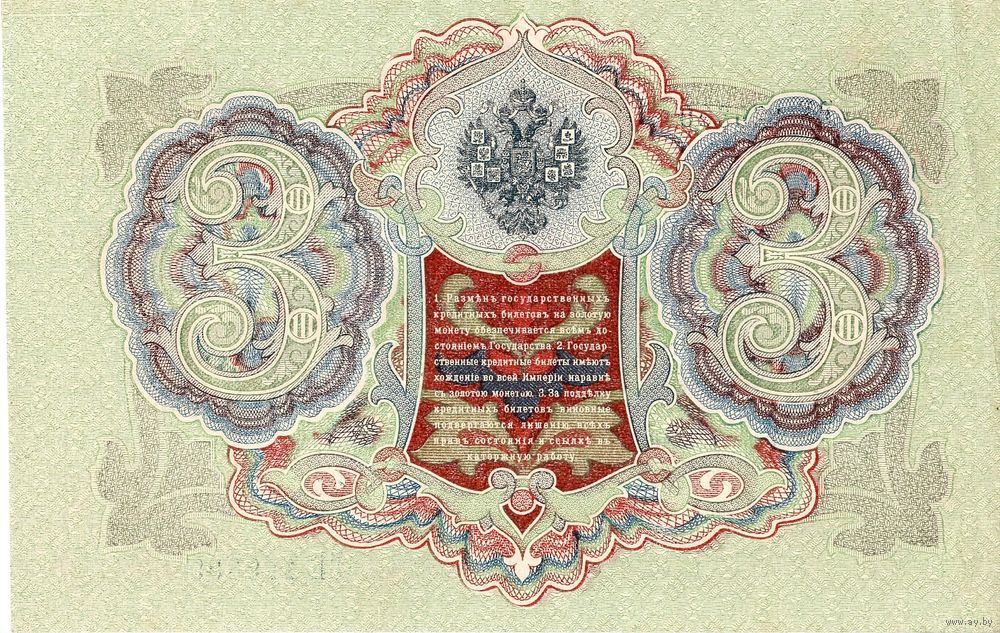 3 3
1. Размѣнъ государственныхъ
кредитныхъ билетовъ на золотую
монету обезпечивается всѣмъ до-
стояніемъ Государства. 2. Государ-
ственные кредитные билеты имѣютъ
хожденіе во всей Имперіи наравнѣ
съ золотою монетою. 3. За поддѣлку
кредитныхъ билетовъ виновные
подвергаются лишенію всѣхъ
правъ состоянія и ссылкѣ въ
каторжную работу.
www.ay.by